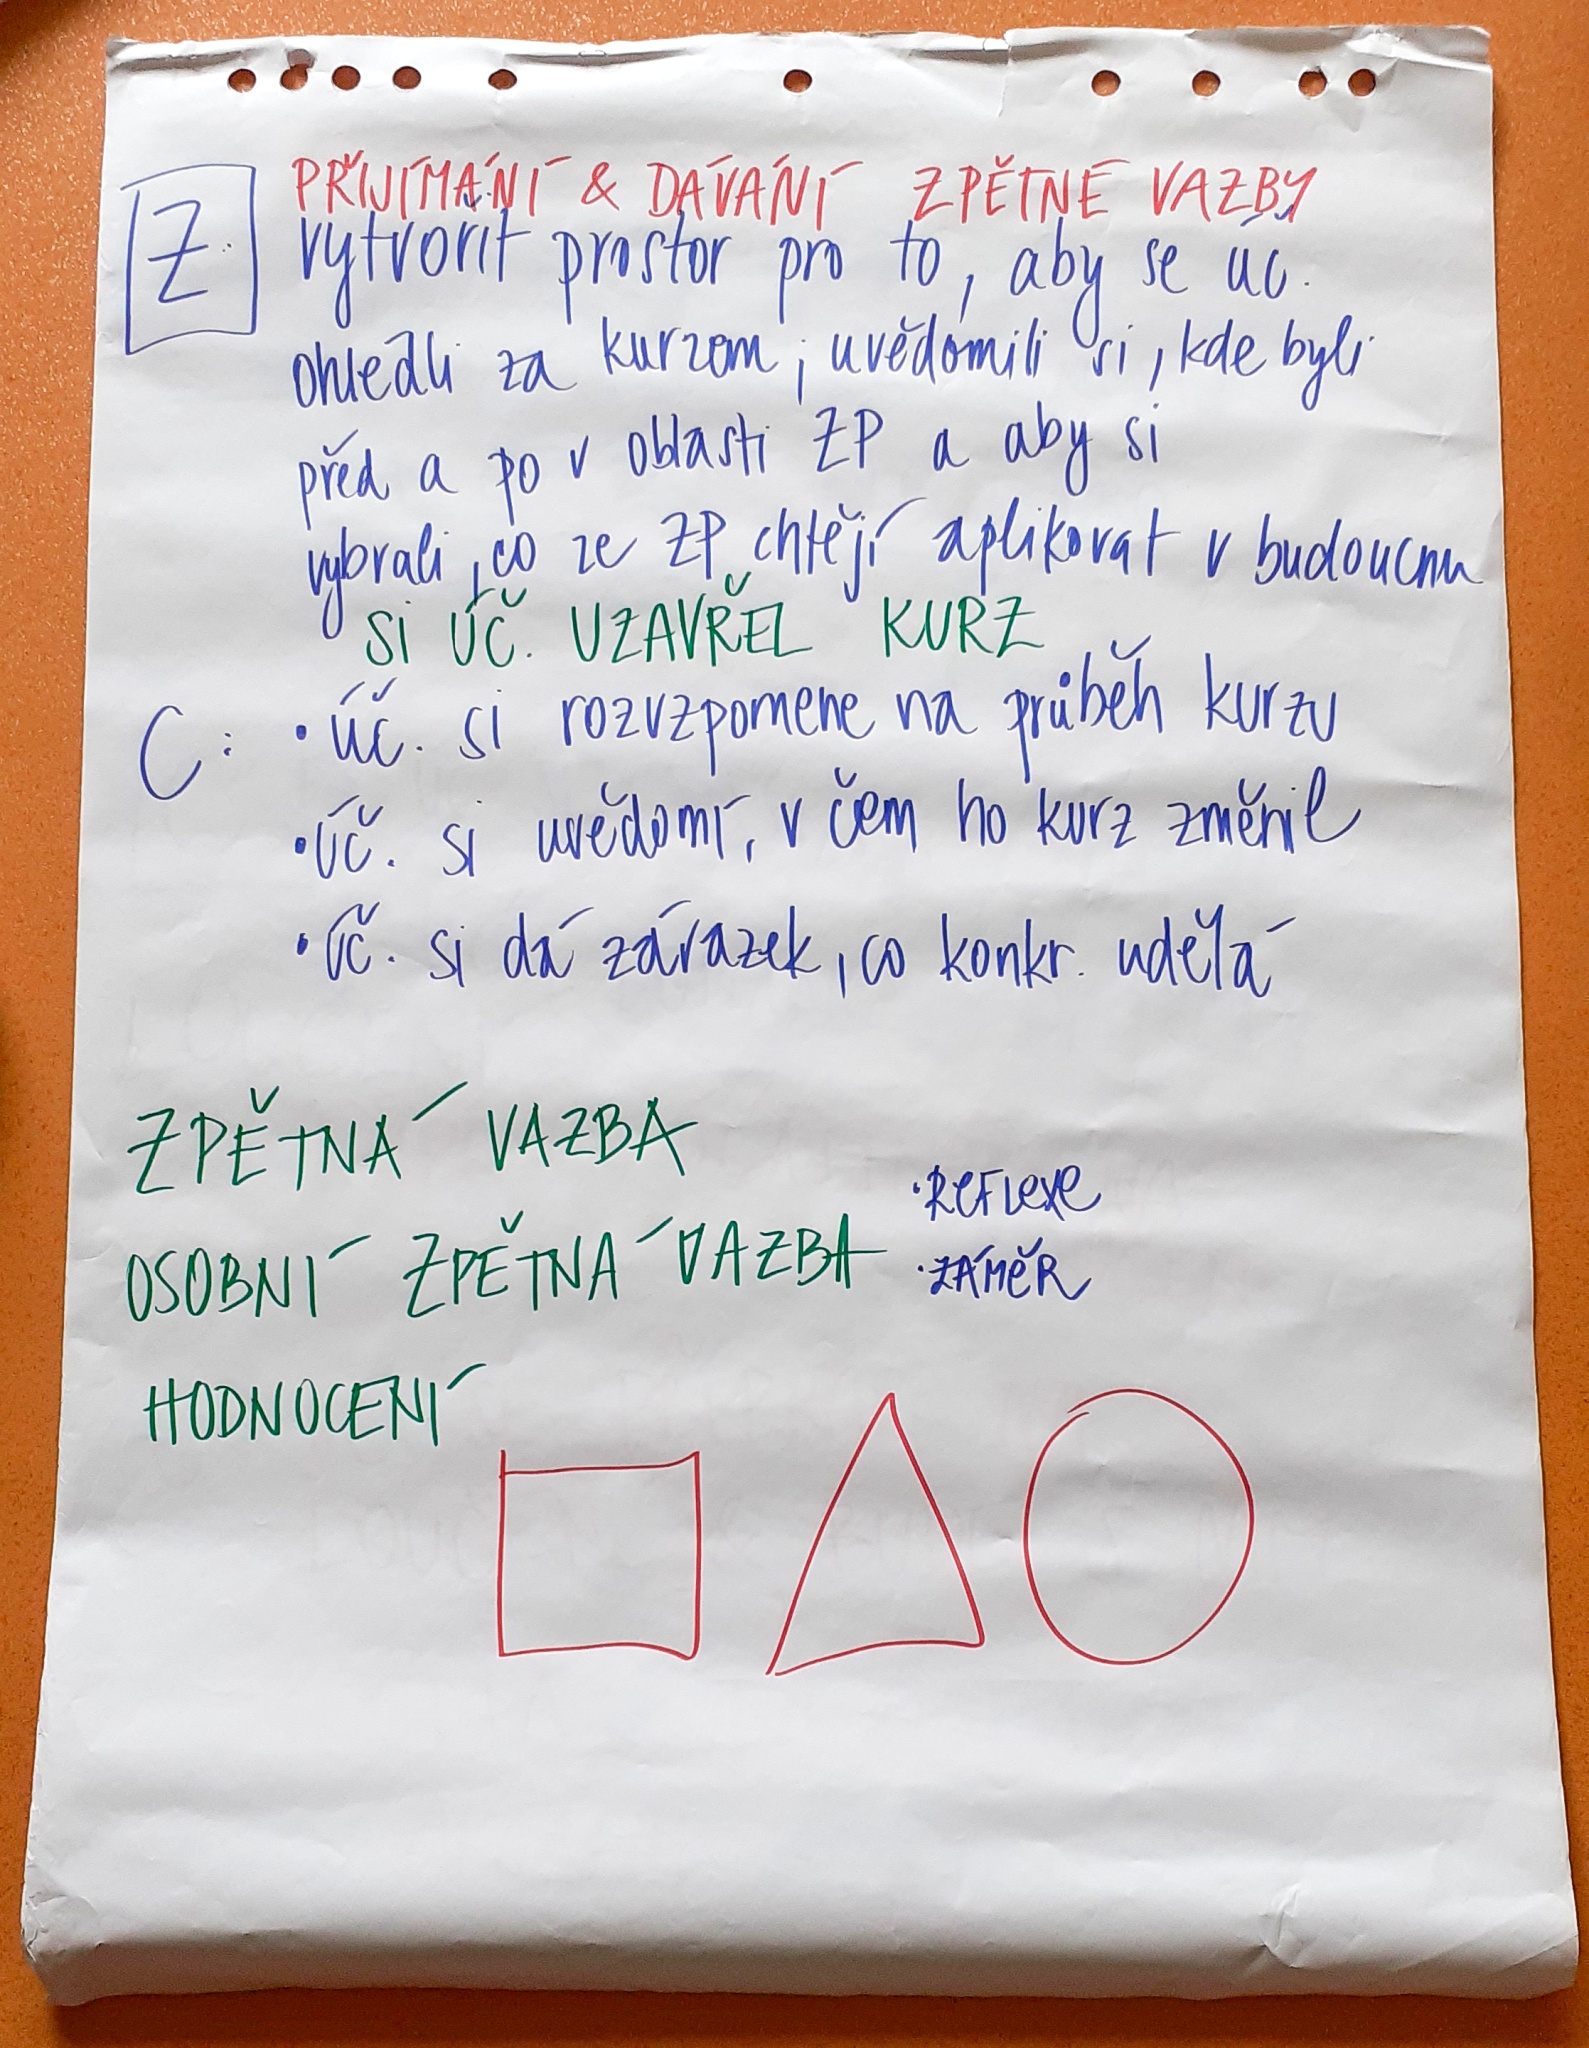 PŘIJÍMÁNÍ & DÁVÁNÍ ZPĚTNÉ VAZBY
Z: vytvořit prostor pro to, aby se úč.
ohlédli za kurzem, uvědomili si, kde byli
před a po v oblasti ZP a aby si
vybrali, co ze ZP chtějí aplikovat v budoucnu
SI ÚČ. UZAVŘEL KURZ
C: • úč. si rozvzpomene na průběh kurzu
• úč. si uvědomí, v čem ho kurz změnil
• úč. si dá závazek, co konkr. udělá
ZPĚTNÁ VAZBA
OSOBNÍ ZPĚTNÁ VAZBA
• REFLEXE
• ZÁMĚR
HODNOCENÍ